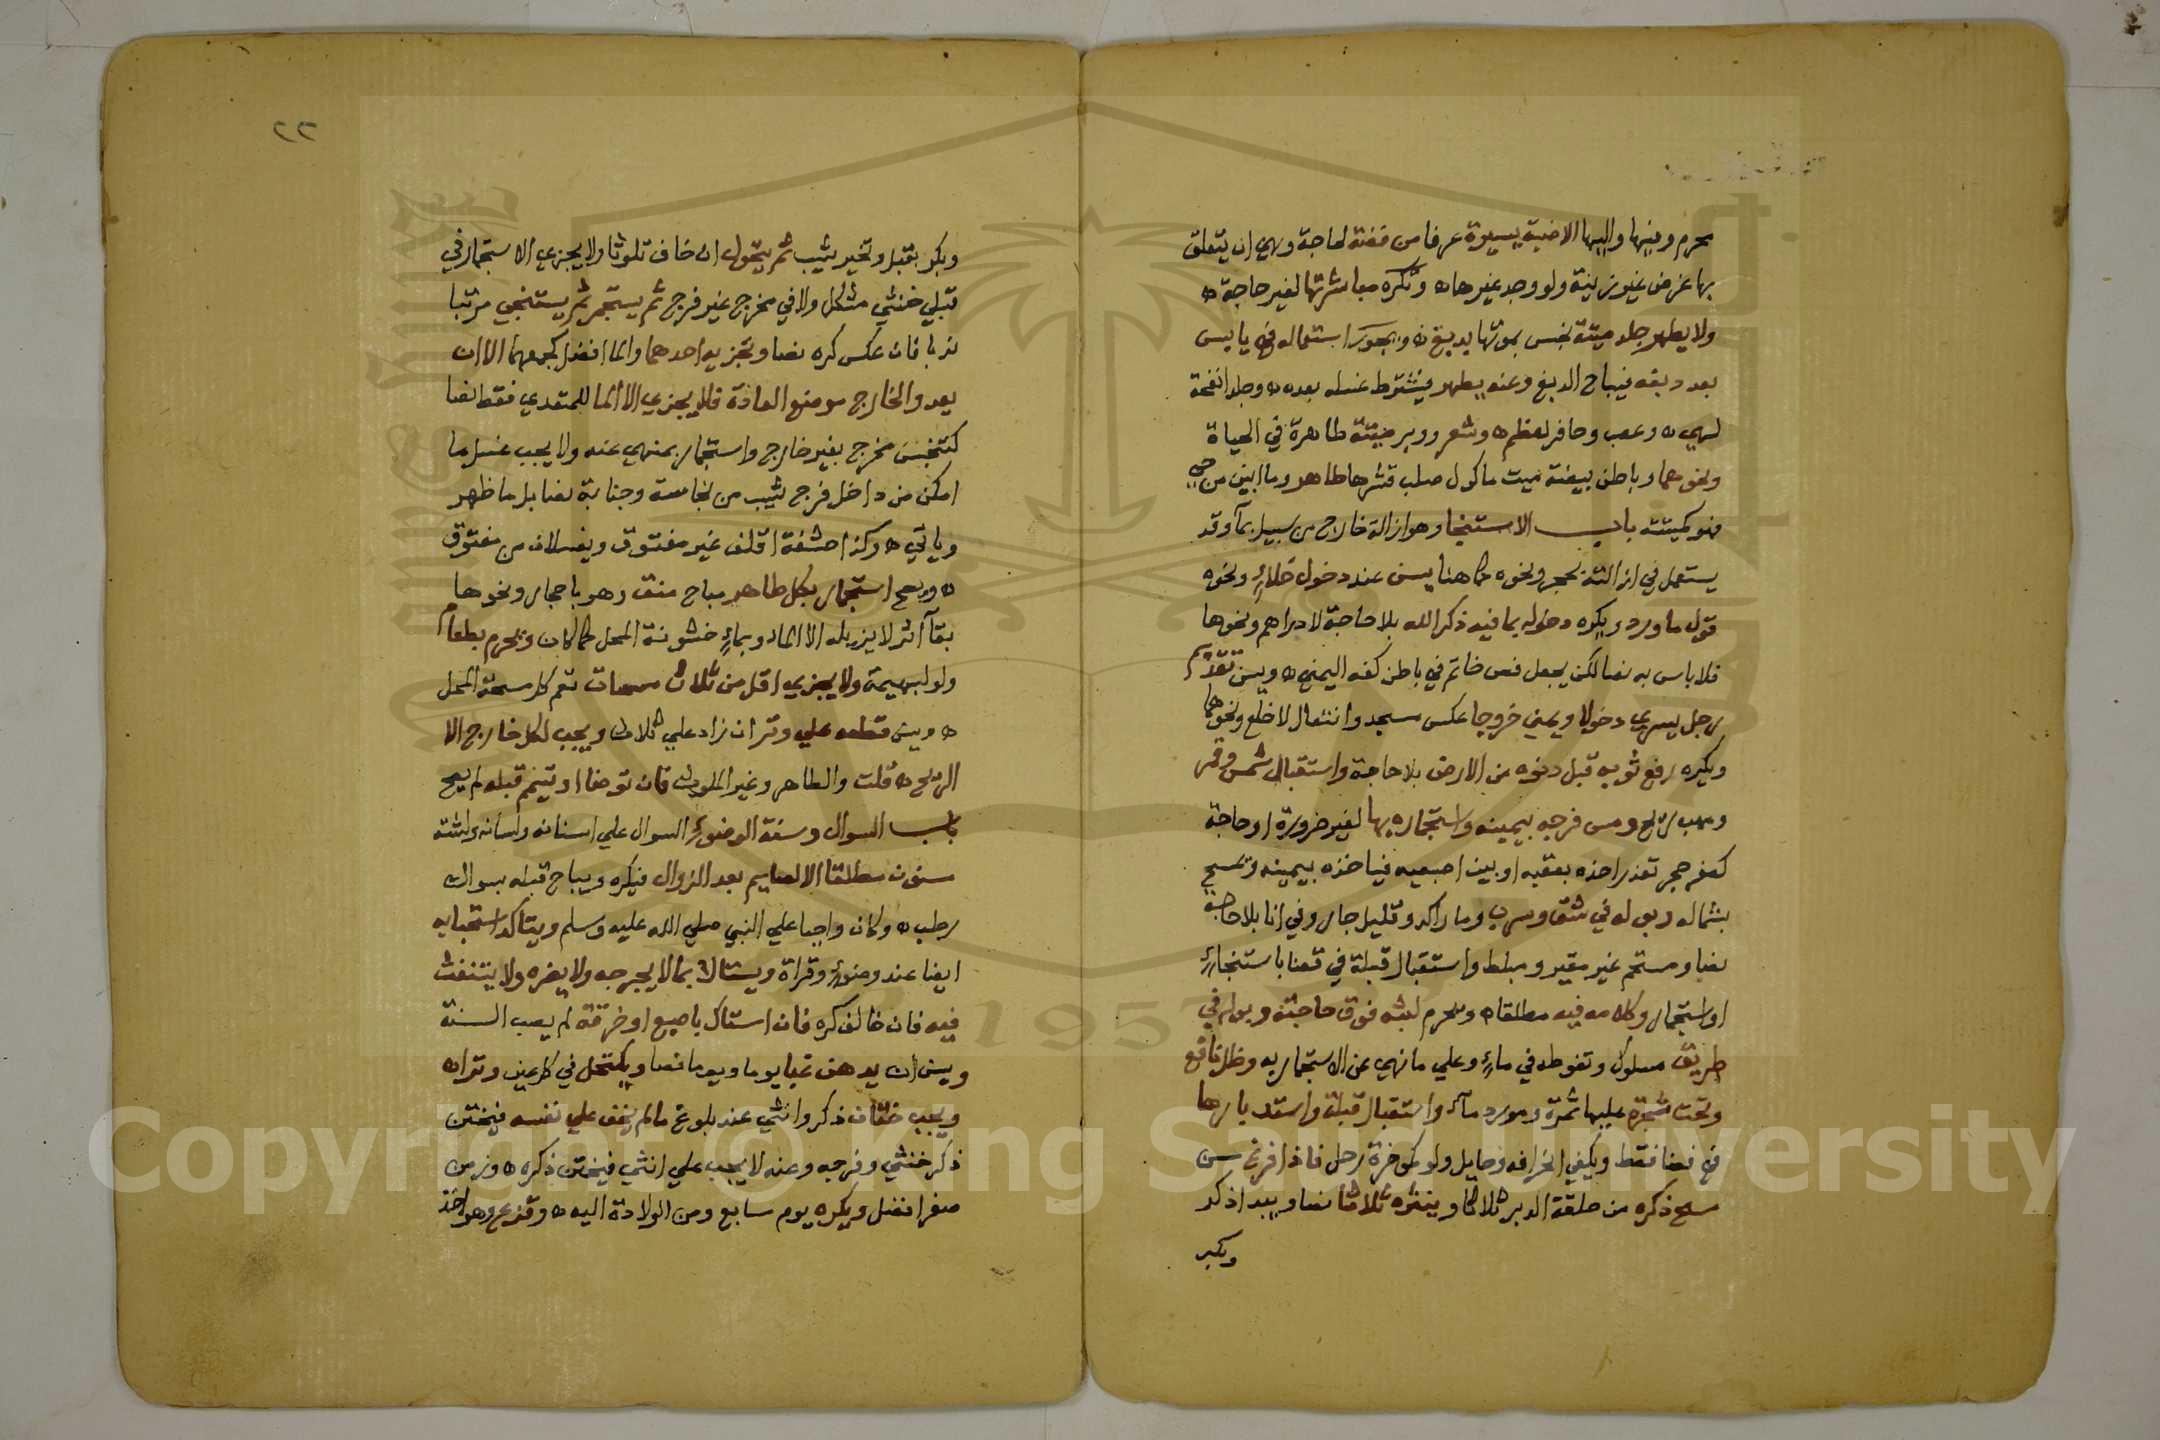 محرم ومنها واليها الا ضبة يسيرة عرفا من فضة لحاجة وهي ان يتعلق
بها غرض غير زينة ولو وجد غيرها ه وتكره مباشرتها لغير حاجة ه
ولا يطهر جلد ميتة نجس بموتها بدبغ ه ويجوز استعماله في يابس
بعد دبغه فيباح الدبغ وعنه يطهر فيشترط غسله بعده ه وجلد انفحة
لهي ه وعصب وحافر لعظم ه وشعر ووبر ميتة طاهرة في الحياة
ونحوهما وباطن بيضة ميت ماكول صلب قشرها طاهر وما ابين من حي
فهو كميتته باب الاستنجا وهو ازالة خارج من سبيل بمآ وقد
يستعمل في ازالته بحجر ونحوه كما هنا يسن عند دخول خلاءٍ ونحوه
قول ما ورد ويكره دخوله بما فيه ذكر الله بلا حاجة لا دراهم ونحوها
فلا باس به نصا لكن يجعل فص خاتم في باطن كفه اليمنى ه ويسن تقديم
رجل يسرى دخولا ويمني خروجا عكس مسجد وانتعال لا خلع ونحوهما
ويكره رفع ثوبه قبل دنوه من الارض بلا حاجة واستقبال شمس وقمر
ومهب ريح ومس فرجه بيمينه واستجماره بها لغير ضرورة او حاجة
كصغر حجر تعذر اخذه بعقبه او بين اصبعيه فياخذه بيمينه وتمسح
بشماله وبوله في شق وسرب وما راكد وقليل جار وفي انا بلا حاجة
نصا ومستحم غير مقير ومبلط واستقبال قبلة في فضا باستنجاءٍ
او استجمار وكلامه فيه مطلقا ه ويحرم لبثه فوق حاجته وبوله في
طريق مسلوك وتغوطه في ماءٍ وعلي ما نهي عن الاستجمار به وظل نافع
وتحت شجرة عليها ثمرة ومورد مآء واستقبال قبلة واستدبارها
في فضا فقط ويكفي انحرافه وحايل ولو كمؤخرة رحل فاذا فرغ سن
مسح ذكره من حلقة الدبر ثلاثا وينتره ثلاثا نصا ويبدا ذكر
وبكر
٢٢
وبكر بقبل وتخير ثيب ثم يتحول ان خاف تلوثا ولا يجزي الاستجمار في
قبلي خنثي مشكل ولا في مخرج غير فرج ثم يستجمر ثم يستنجي مرتبا
ندبا فان عكس كره نصا وتجزيه احدهما والما افضل كجمعهما الا ان
يعدو الخارج موضع العادة فلا يجزي الا الما للمتعدي فقط نصا
كتنجس مخرج بغير خارج واستجمار بمنهي عنه ولا يجب غسل ما
امكن من داخل فرج ثيب من نجاسة وجنابة نصا بل ما ظهر
وياتي ه وكذا حشفة اقلف غير مفتوق ويغسلان من مفتوق
ه ويصح استجمار بكل طاهر مباح منق وهو باحجار ونحوها
بقآ اثر لا يزيله الا الماء وبماءٍ خشونة المحل كما كان ويحرم بطعام
ولو لبهيمة ولا يجزي اقل من ثلاث مسحات تعم كل مسحة المحل
ه ويسن قطعه علي وتر ان زاد علي ثلاث ويجب لكل خارج الا
الريح ه قلت والطاهر وغير الملوث فان توضا او تيمم قبله لم يصح
باب السواك وسنة الوضوءِ السواك علي اسنانه ولسانه ولثته
مسنون مطلقا الا لصايم بعد الزوال فيكره ويباح قبله بسواك
رطب ه وكان واجبا علي النبي صلي الله عليه وسلم ويتاكد استحبابه
ايضا عند وضوءٍ وقراة ويستاك بما لا يجرحه ولا يضره ولا يتنفت
فيه فان خالف كره فان استاك باصبع او خرقة لم يصب السنة
ويسن ان يدهن غبا يوما ويوما نصا ويكتحل في كل عين وترا ه
ويجب ختان ذكر وانثي عند بلوغ ما لم يخف علي نفسه فيختن
ذكر خنثي وفرجه وعنه لا يجب علي انثي فيختن ذكره ه وزمن
صغر افضل ويكره يوم سابع ومن الولادة اليه ه وقزع وهو اخذ